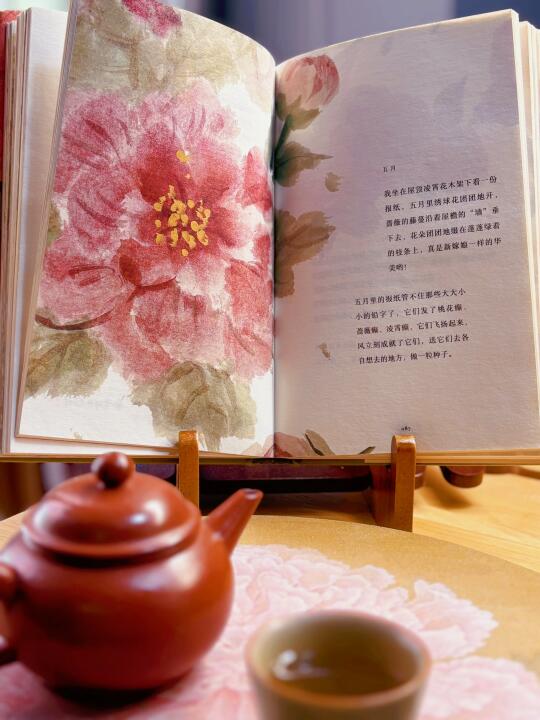 五月
我坐在屋顶凌霄花木架下看一份
报纸，五月里绣球花团团地开，
蔷薇的藤蔓沿着屋檐的“墙”垂
下去，花朵团团地缀在蓬蓬绿着
的枝条上，真是新嫁娘一样的华
美哟！
五月里的报纸管不住那些大大小
小的铅字了，它们发了桃花癫、
蔷薇癫、凌霄癫，它们飞扬起来，
风立刻成就了它们，送它们去各
自想去的地方，做一粒种子。
087